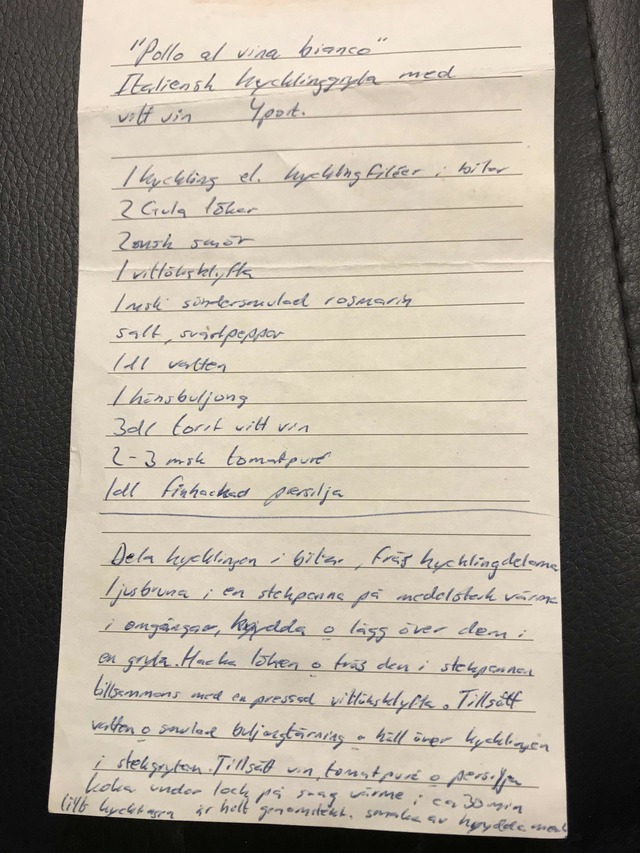 "Pollo al vina bianco"
Italiensk kycklinggryta med
vitt vin 4port.
1 kyckling el. kycklingfiléer i bitar
2 Gula lökar
2 msk smör
1 vitlöksklyfta
1 msk söndersmulad rosmarin
salt, svartpeppar
1 dl vatten
1 hönsbuljong
3dl torrt vitt vin
2-3 msk tomatpuré
1dl finhackad persilja
Dela kycklingen i bitar, fräs kycklingdelarna
ljusbruna i en stekpanna på medelsterk värme
i omgångar, krydda o lägg över dem i
en gryta. Hacka löken o fräs den i stekpannan
tillsammans med en pressad vitlöksklyfta. Tillsätt
vatten o smulad buljongtärning o häll över kycklingen
i stekgrytan. Tillsätt vin, tomatpuré o persilja
koka under lock på svag värme i ca 30 min
tills kycklingen är helt genomstekt. smaka av krydda med